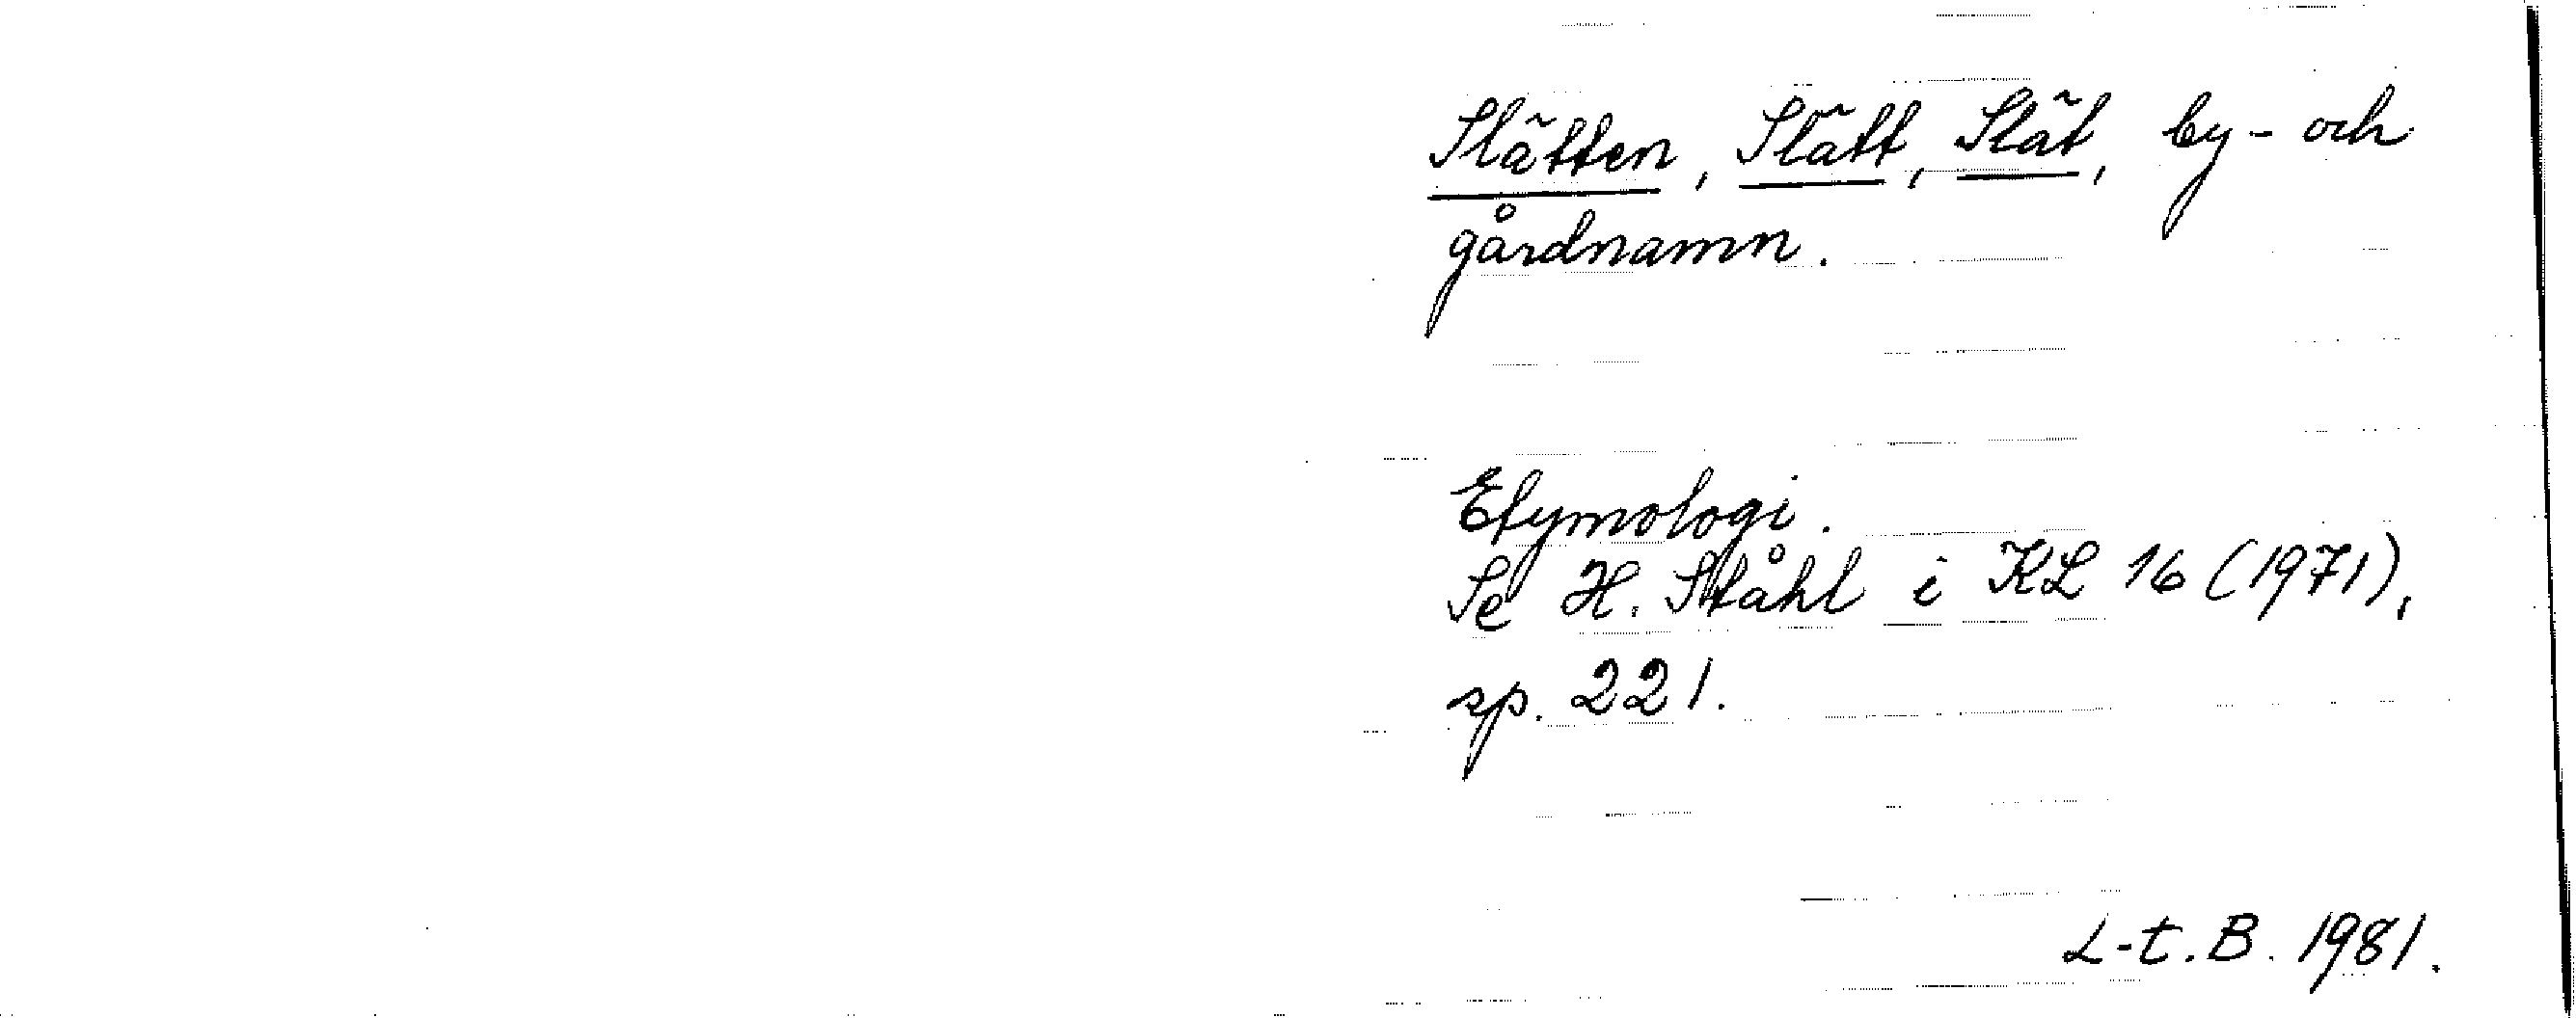 Slätten, Slätt, Slät, by- och
gårdnamn.
Etymologi.
Se H. Ståhl i KL 16 (1971),
sp. 221.
L-t. B. 1981.